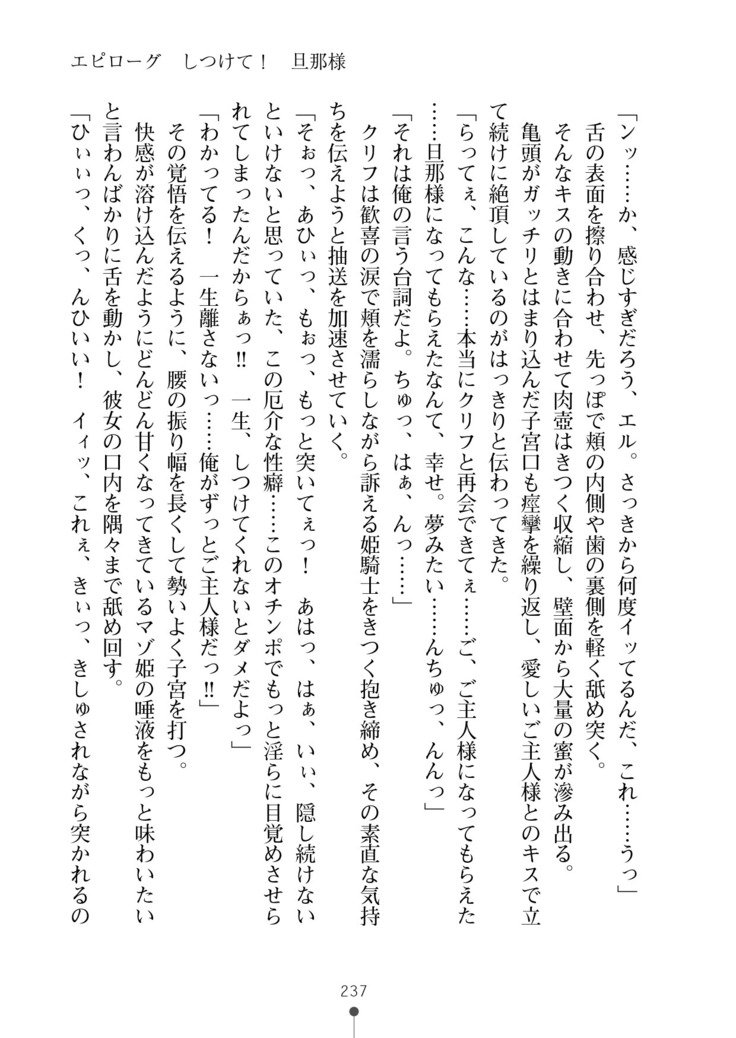 エピローグ　しつけて！　旦那様
「ンッ……か、感じすぎだろう、エル。さっきから何度イッてるんだ、これ……うっ」
　舌の表面を擦り合わせ、先っぽで頬の内側や歯の裏側を軽く舐め突く。
　そんなキスの動きに合わせて肉壺はきつく収縮し、壁面から大量の蜜が滲み出る。
　亀頭がガッチリとはまり込んだ子宮口も痙攣を繰り返し、愛しいご主人様とのキスで立
て続けに絶頂しているのがはっきりと伝わってきた。
「らってぇ、こんな……本当にクリフと再会できてぇ……ご、ご主人様になってもらえた
……旦那様になってもらえたなんて、幸せ。夢みたい……んちゅっ、んんっ」
「それは俺の言う台詞だよ。ちゅっ、はぁ、んっ……」
　クリフは歓喜の涙で頬を濡らしながら訴える姫騎士をきつく抱き締め、その素直な気持
ちを伝えようと抽送を加速させていく。
「そぉっ、あひぃっ、もぉっ、もっと突いてぇっ！　あはっ、はぁ、いぃ、隠し続けない
といけないと思っていた、この厄介な性癖……このオチンポでもっと淫らに目覚めさせら
れてしまったんだからぁっ‼　一生、しつけてくれないとダメだよっ」
「わかってる！　一生離さないっ……俺がずっとご主人様だっ‼」
　その覚悟を伝えるように、腰の振り幅を長くして勢いよく子宮を打つ。
　快感が溶け込んだようにどんどん甘くなってきているマゾ姫の唾液をもっと味わいたい
と言わんばかりに舌を動かし、彼女の口内を隅々まで舐め回す。
「ひぃぃっ、くっ、んひいい！　イィッ、これぇ、きぃっ、きしゅされながら突かれるの
237